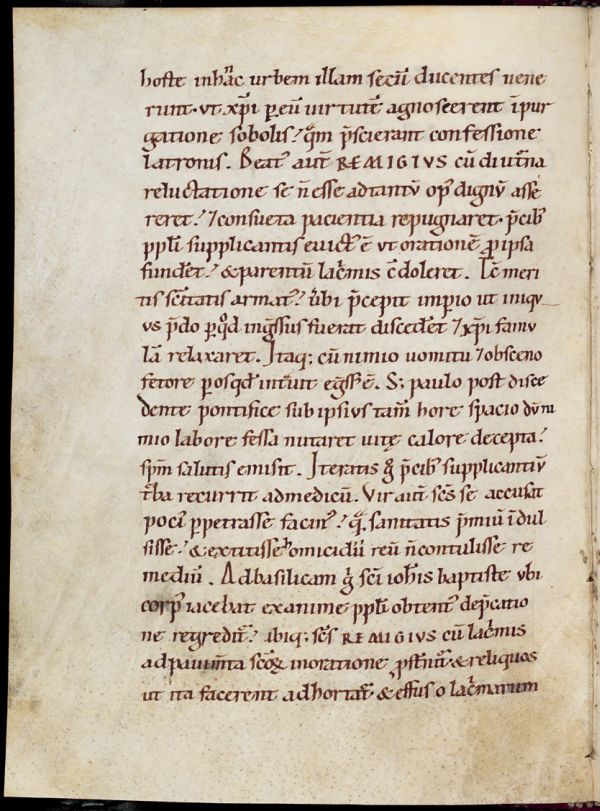 hoste inhac urbem illam secũ ducentes uene
runt· ut xp̃i p eũ uirtutẽ agnoscerent ĩ pur
gatione sobolis? quã p̃scierant confessione
latronis. Beatꝰ autẽ REMIGIVS cũ diutr̃na
reluctatione se ñ esse ad tantũ opꝰ dignũ asse
reret? ⁊ consueta pacientia repugnaret· p̃cibꝰ
pplĩ supplicantis euictꝰ ẽ ut orationẽ ꝓ ipsa
fundẽt? & parentũ lacr̃mis c̃doleret. Iã meri
tis sc̃itatis armatꝰ? ubi p̃cepit imp̱io ut iniqu
us p̃do ꝑ qđ ing̃ssus fuerat discedẽt ⁊ xp̃i famu
lã relaxaret. Itaq; cũ nimio uomitu ⁊ obsceno
fetore ꝑ os qđ int̃uit eg̃ssꝰ ẽ. S; paulo post disce
dente pontifice sub ipsius tam̃ hore spacio dũ ni
mio labore fessa nutaret uitę calore decepta?
sp̃m salutis emisit. Iteratis g̃ p̃cibꝰ supplicantiũ
t̃ba recurrit ad medicũ. Vir autẽ sc̃s se accusat
pociꝰ ꝑpetrasse facinꝰ? quã sanitatis p̃miũ ĩdul
sisse? & extitisse homicidii reũ ñ contulisse re
mediũ. Ad basilicam g̃ sc̃i ioh̃is baptiste ubi
corpꝰ iacebat exanime pplĩ obtentꝰ dep̃catio
ne regredit᷑? ibiq; sc̃s REMIGIVS cũ lacr̃mis
ad pauim̃ta sc̃oꝝ in oratione p̱st̃nit᷑· & reliquos
ut ita facerent adhortat᷑· & effuso lacr̃marum